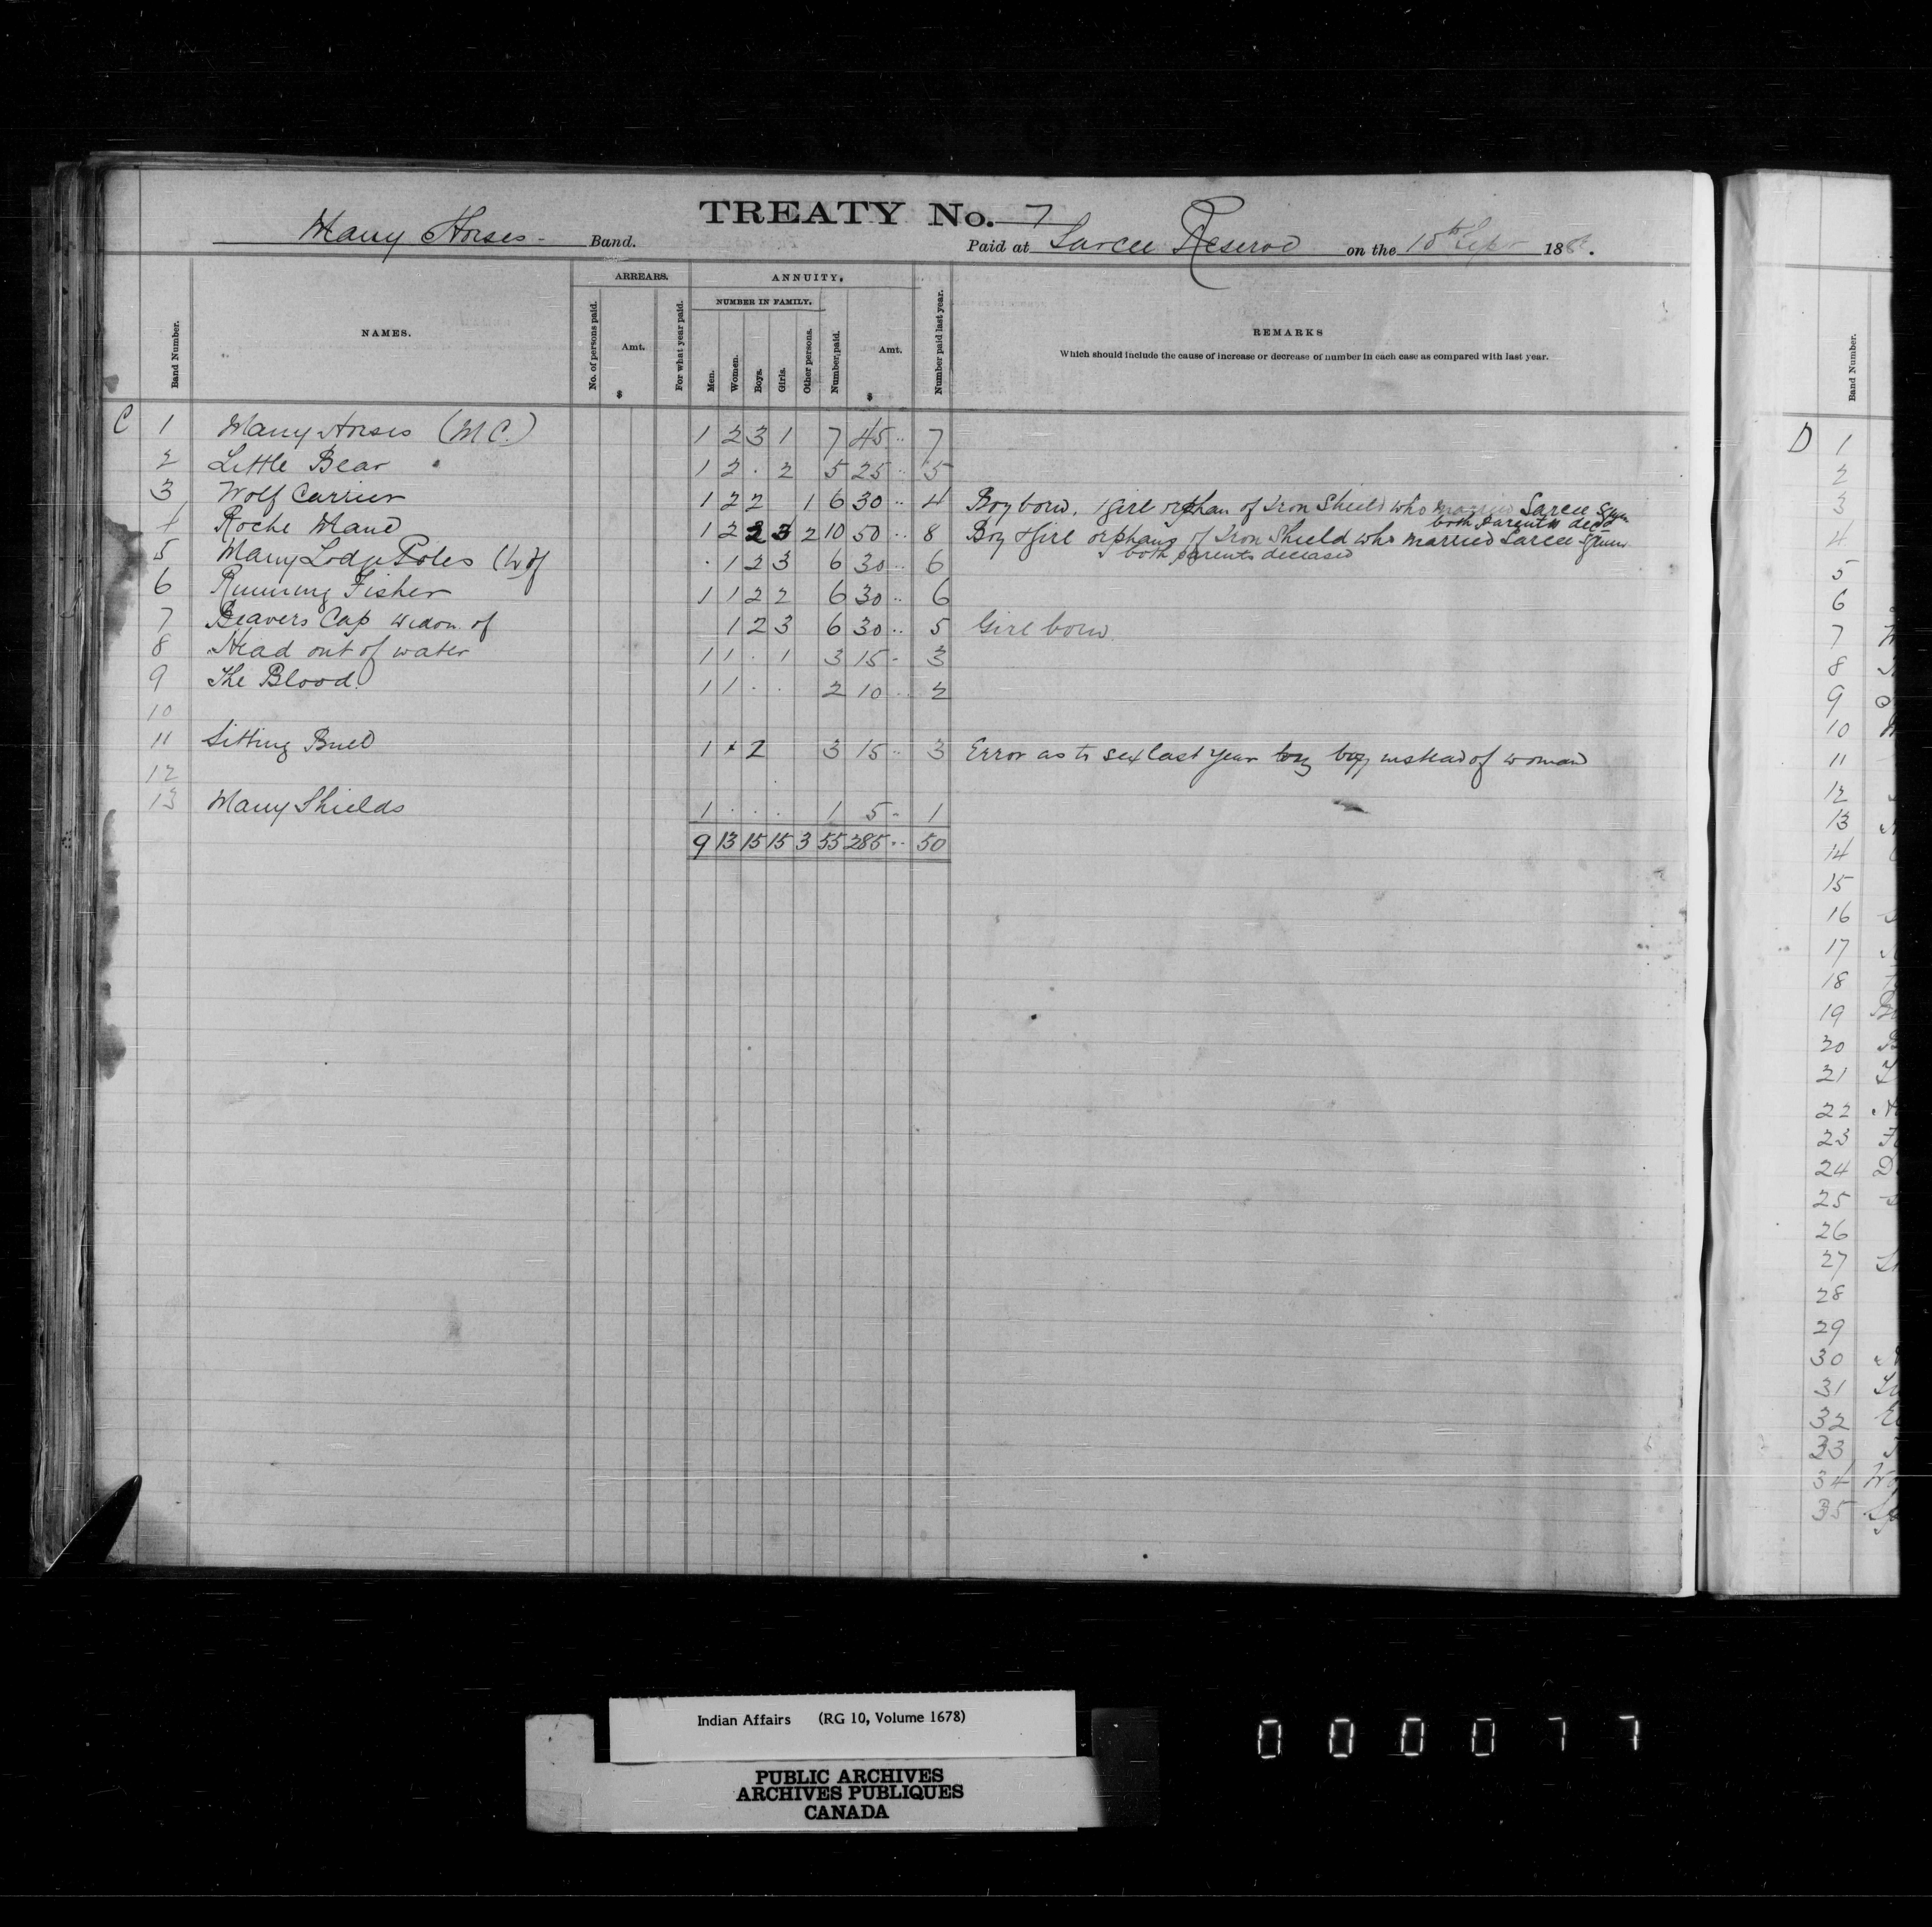 TREATY No. 7
Many Horses - Band.
Paid at Sarcee Reserve on the 15th Sept 188 .
Band Number.
NAMES.
ARREARS.
No. of persons paid.
Amt.
$
For what year paid.
ANNUITY.
NUMBER IN FAMILY.
Men.
Women.
Boys.
Girls.
Other persons.
Number paid.
Amt.
$
Number paid last year.
REMARKS
Which should include the cause of increase or decrease of number in each case as compared with last year.
C 1 Many Horses (M C.) 1 2 3 1 7 45 .. 7
2 Little Bear 1 2 . 2 5 25 .. 5
3 Wolf Carrier 1 2 2 1 6 30 .. 4 Boy born, 1 girl orphan of Iron Shield who married Sarcee Squaw
both parents decd
4 Roche Mane 1 2 2 3 2 10 50 .. 8 Boy & girl orphans of Iron Shield who married Sarcee Squaw
& both parents deceased
5 Many Lodge Poles (W of . 1 2 3 6 30 .. 6
6 Running Fisher 1 1 2 2 6 30 .. 6
7 Beavers Cap widow of 1 2 3 6 30 .. 5 Girl born.
8 Head out of water 1 1 . 1 3 15 - 3
9 The Blood. 1 1 . . 2 10 .. 2
10
11 Sitting Bull 1 2 3 15 .. 3 Error as to sex last year boy instead of woman
12
13 Many Shields 1 . . . 1 5 - 1
9 13 15 15 3 55 285 .. 50
Band Number.
D 1
2
3
4
5
6
7
8
9
10
11
12
13
14
15
16
17
18
19
20
21
22
23
24
25
26
27
28
29
30
31
32
33
34
35
Indian Affairs (RG 10, Volume 1678)
PUBLIC ARCHIVES
ARCHIVES PUBLIQUES
CANADA
000077